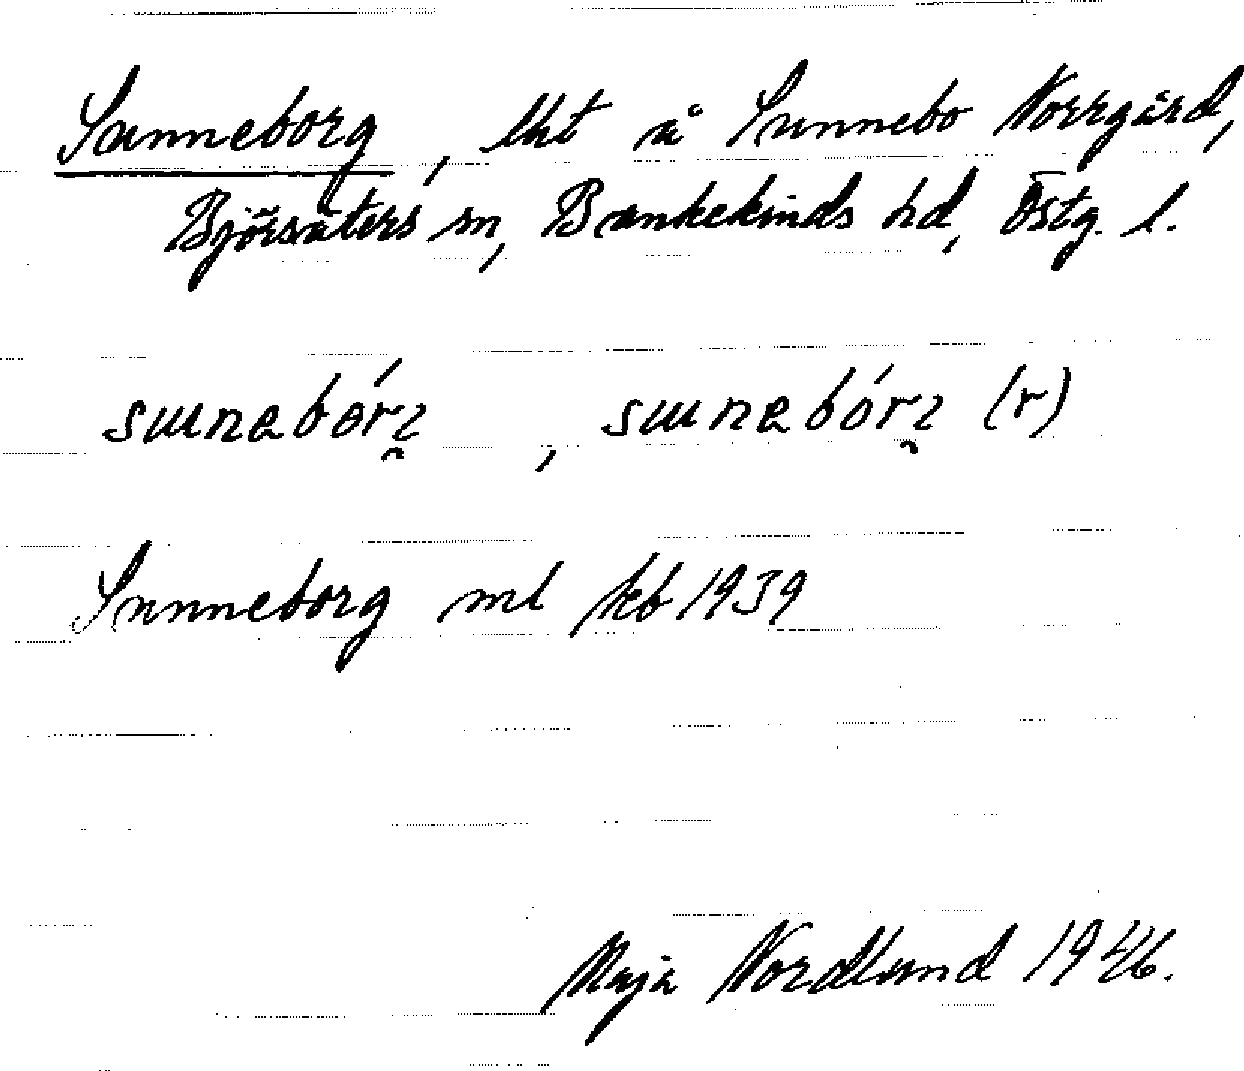 Sunneborg, lht å Sunnebo Norrgård,
Björsäters sn, Bankekinds hd, Östg. l.
Sunneborg ml kb 1939
Maja Nordlund 1946.